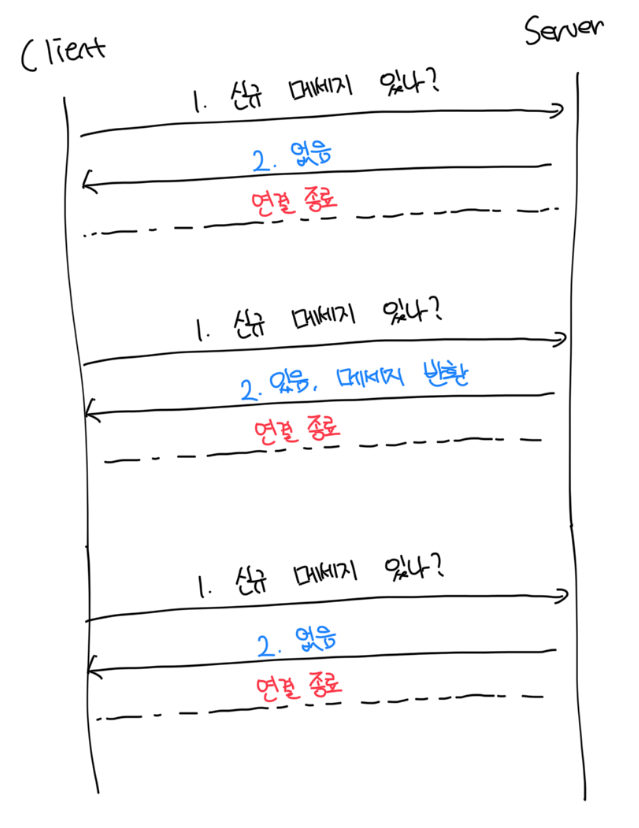 Client
Server
1. 신규 메세지 있나?
2. 없음
연결 종료
1. 신규 메세지 있나?
2. 있음, 메세지 반환
연결 종료
1. 신규 메세지 있나?
2. 없음
연결 종료